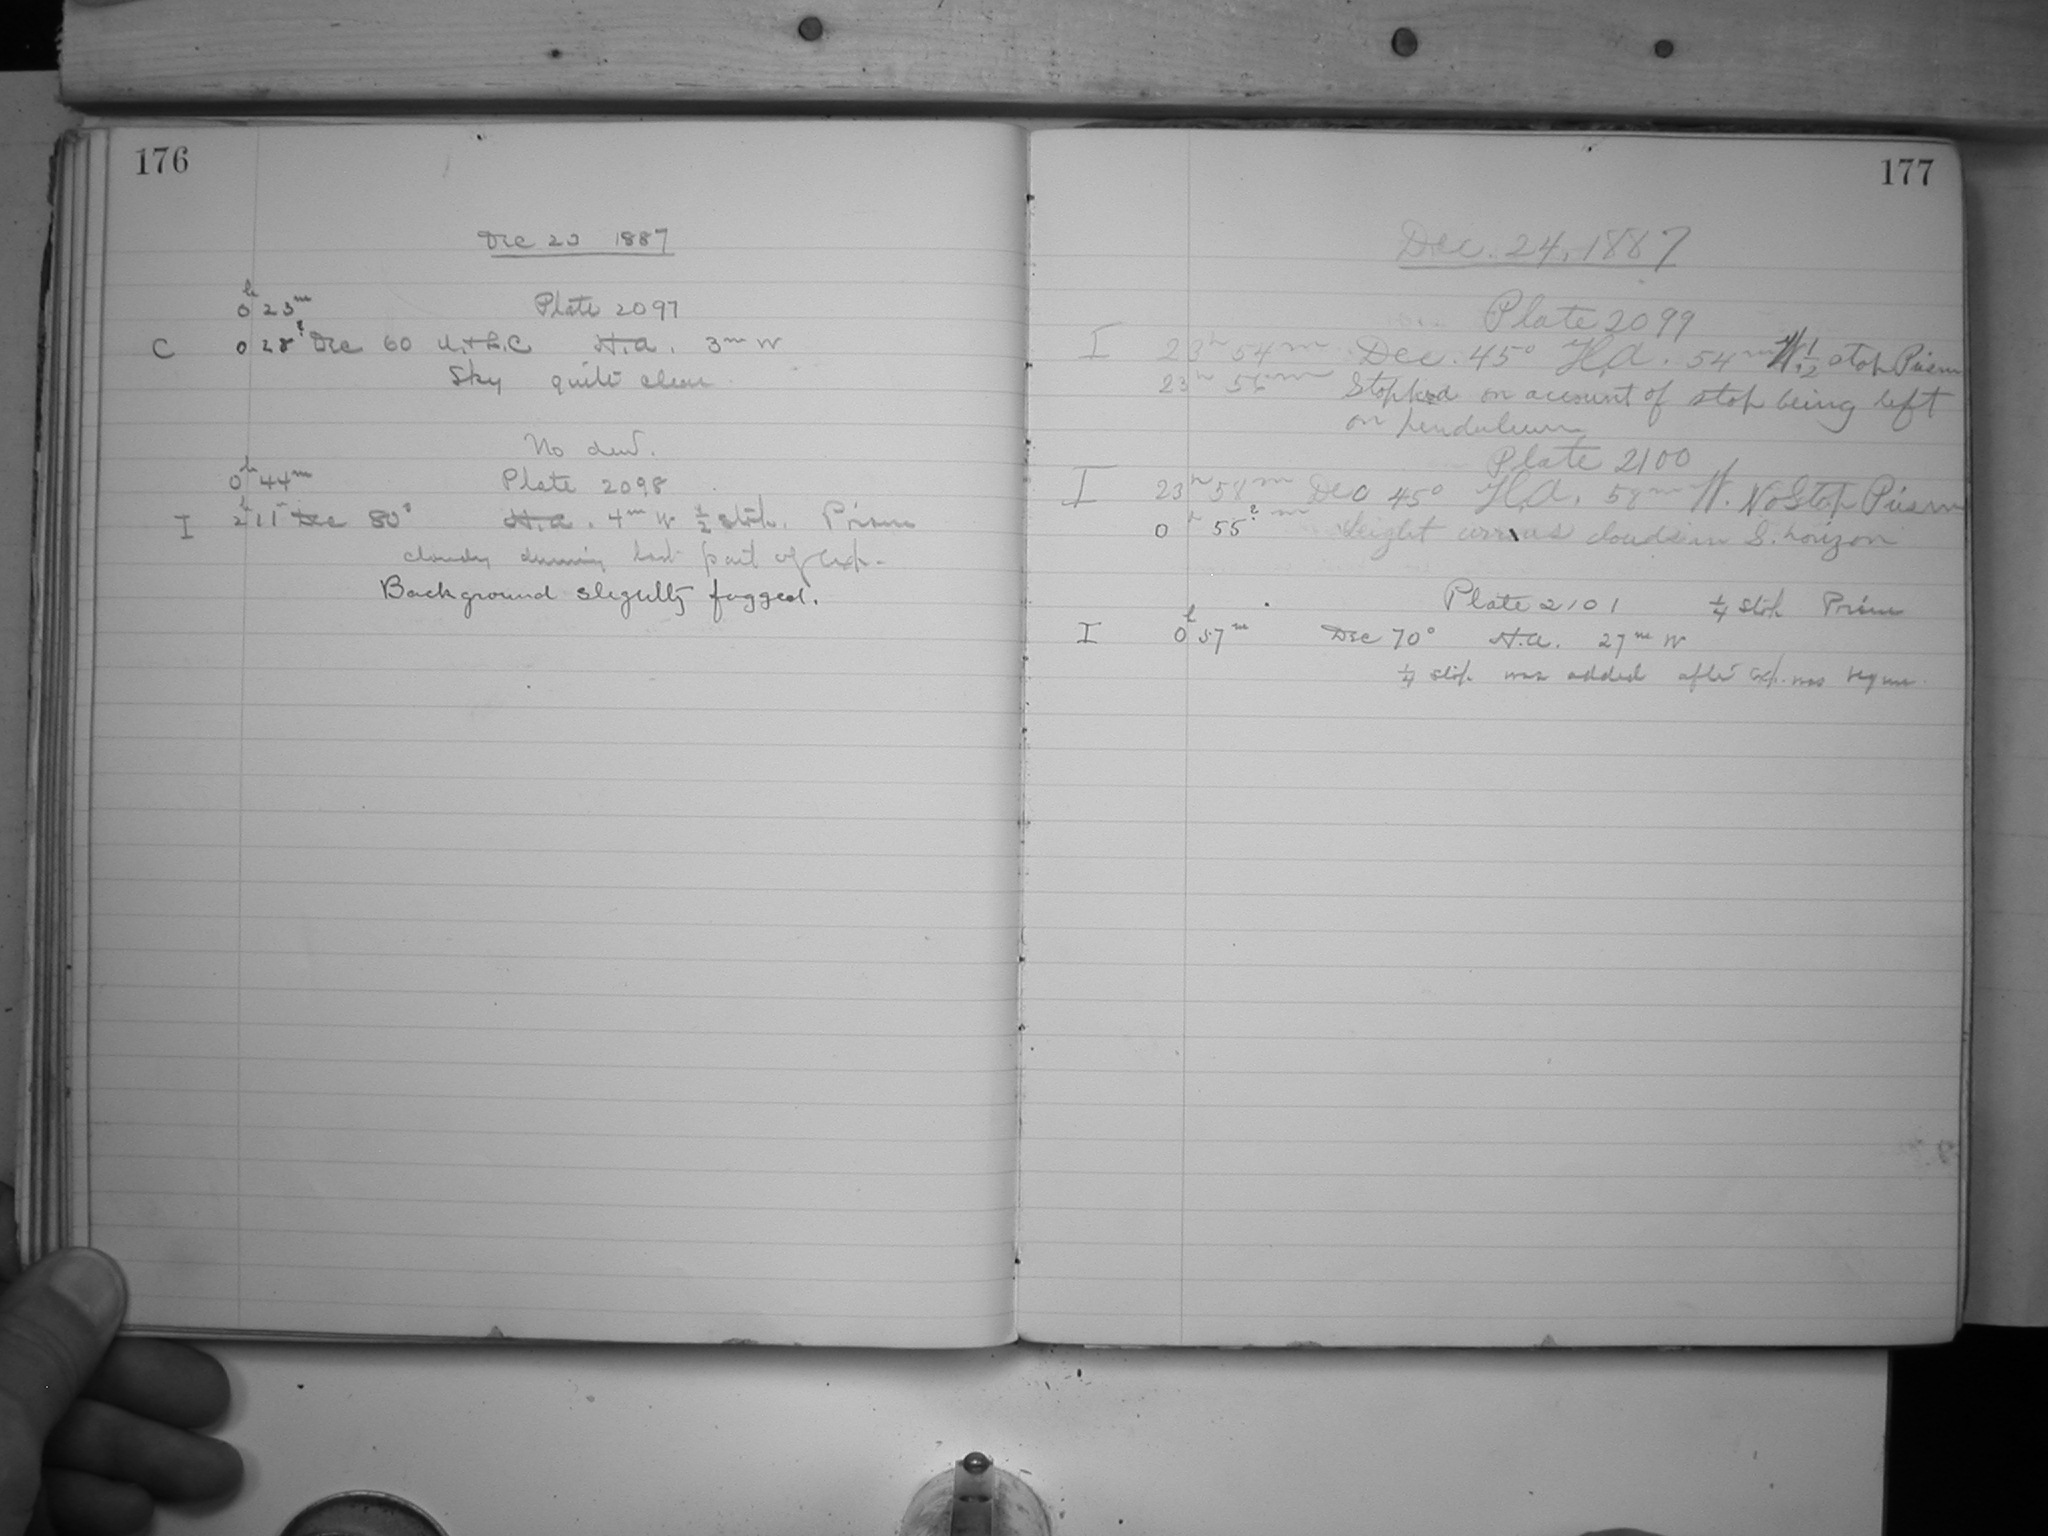 176
Dec 23 1887
0h 23m Plate 2097
C 0 28? Dec 60 U.+L.C H.A. 3m W
Sky quite clear
No dew.
0h 44m Plate 2098
I 2h 11 Dec 80° H.A. 4m W 1/2 stop. Prism
cloudy during last part of exp.
Background slightly fogged.
177
Dec. 24, 1887
Plate 2099
I 23h 54m Dec. 45° H.A. 54m W. 1/2 stop Prism
23h 56m Stopked on account of stop being left
on pendulum
Plate 2100
I 23h 58m Dec 45° H.A. 58m W. No Stop Prism
0h 55?m Slight cirrus clouds in S. horizon
Plate 2101 1/4 stop Prism
I 0h 57m Dec 70° H.A. 27m W
1/4 stop was added after exp. was begun.